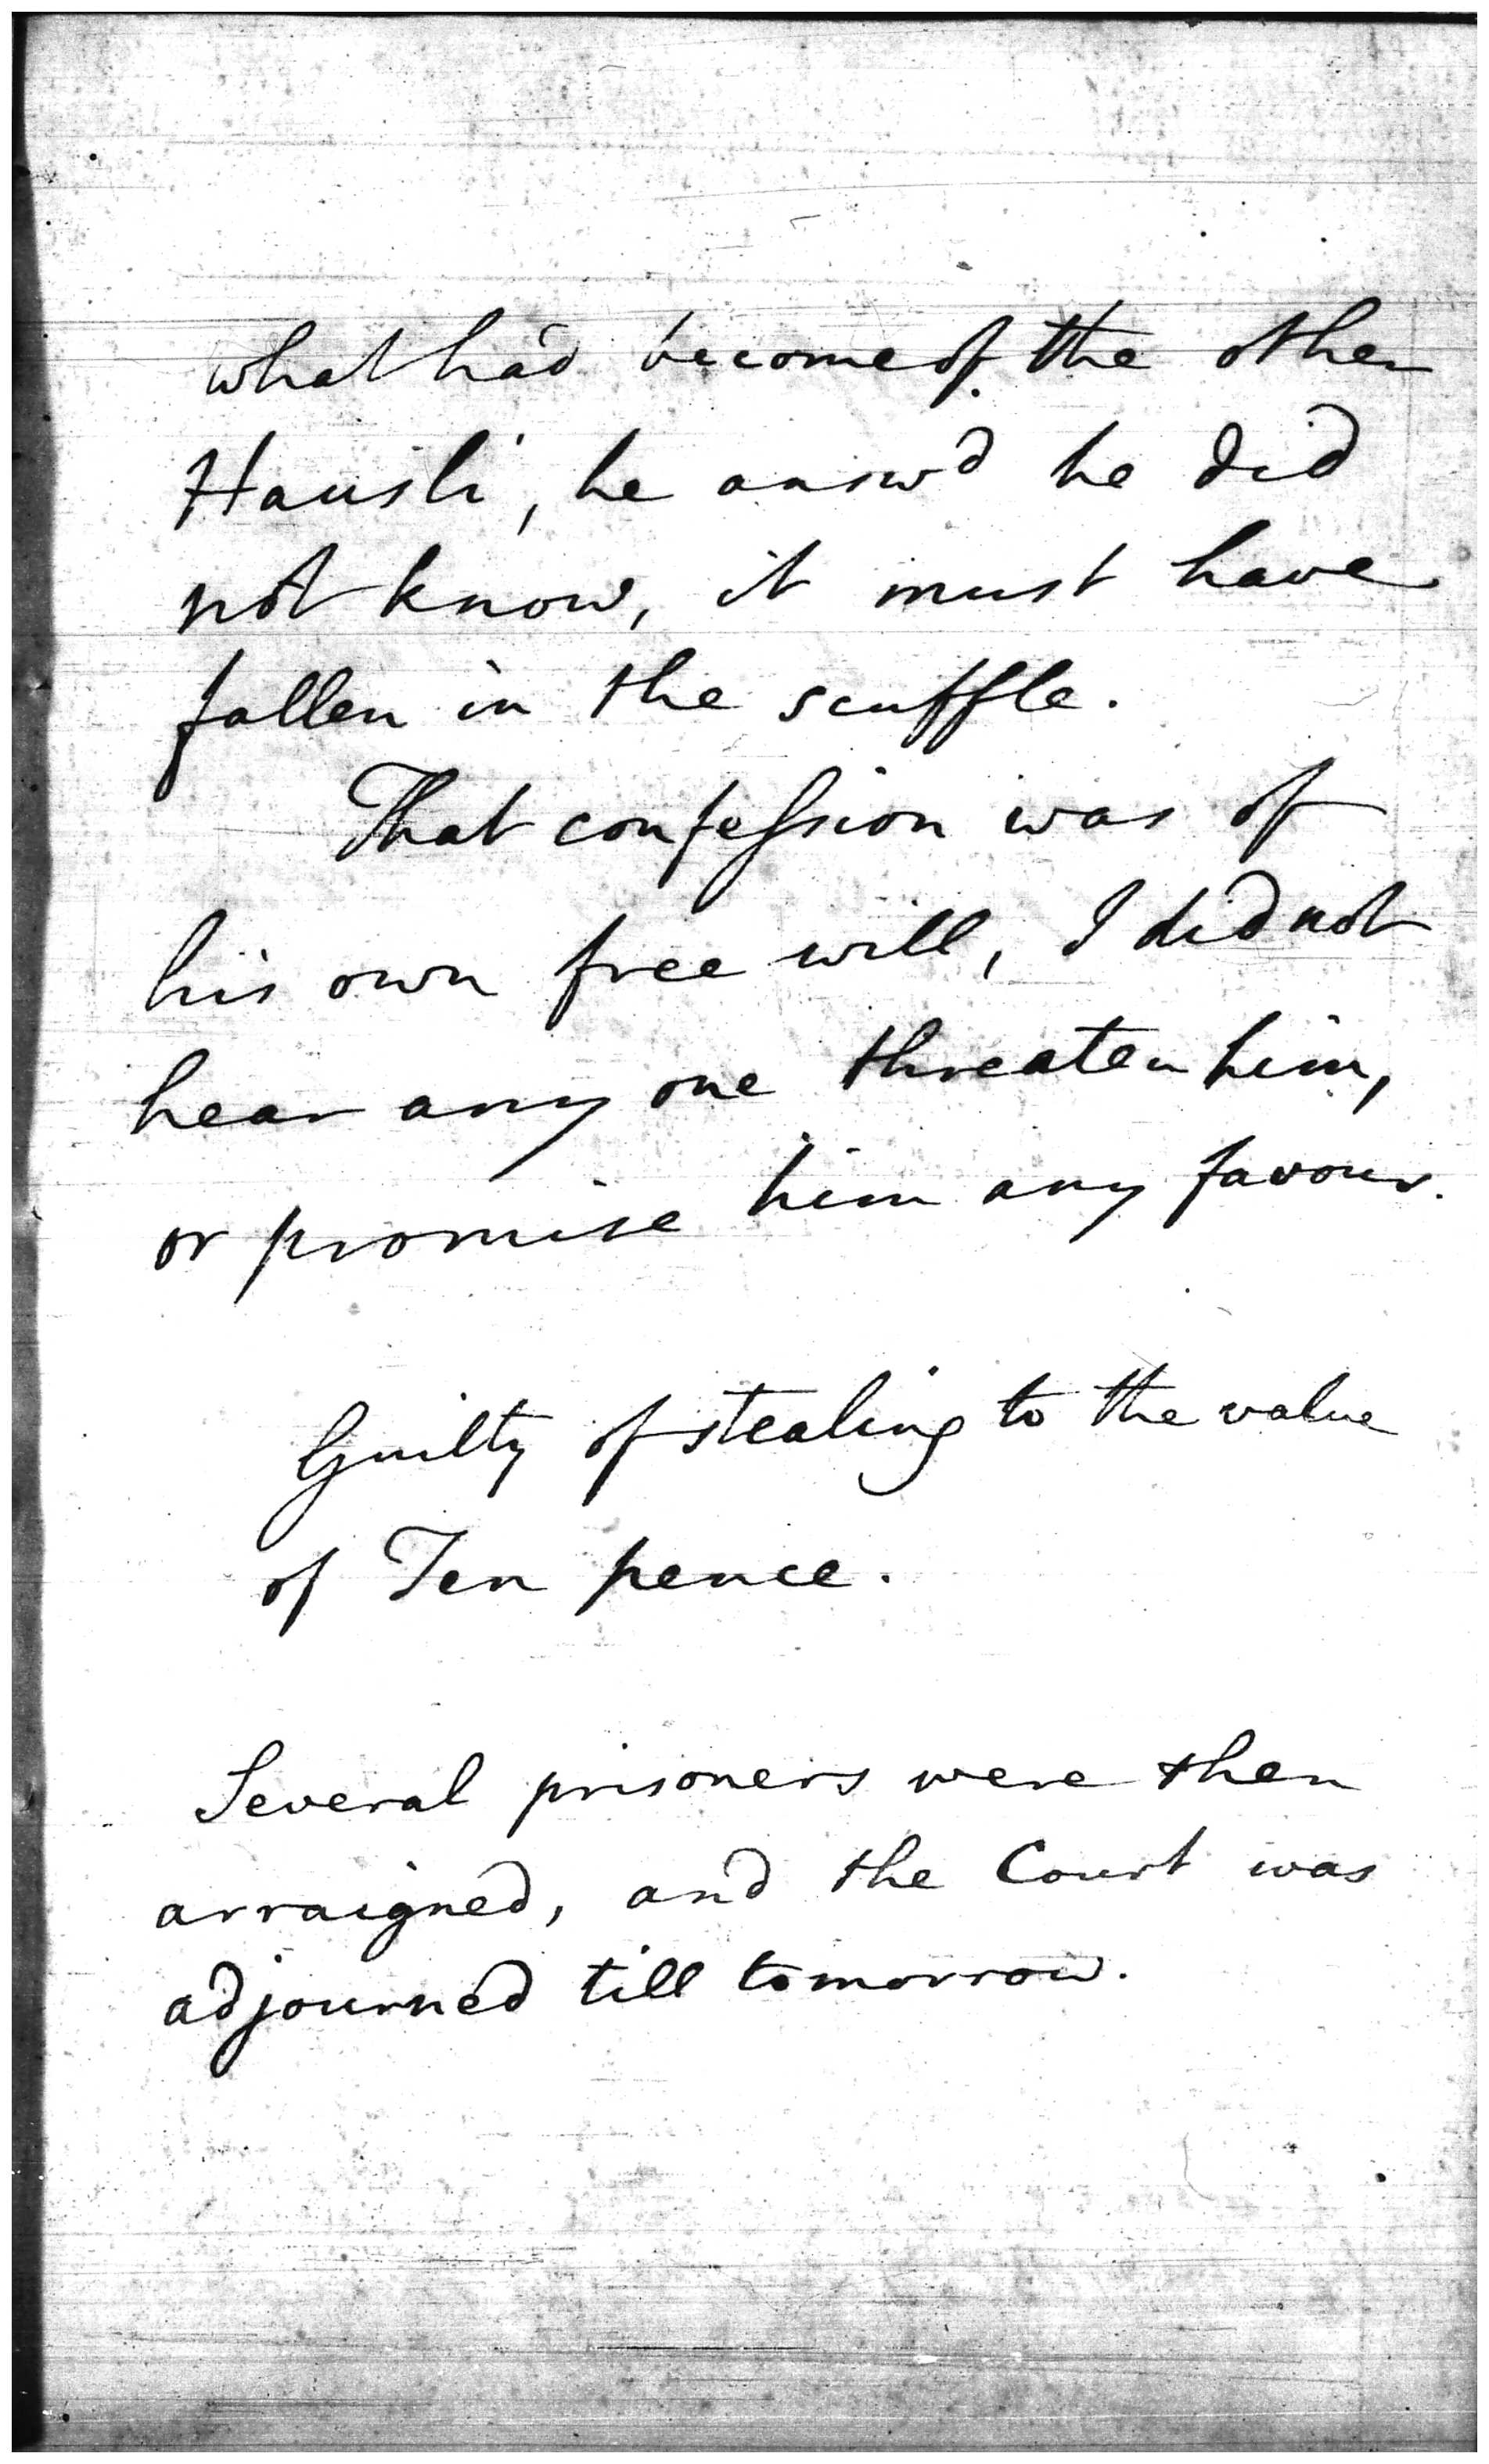 what had become of the other
Hausli, he answd he did
not know, it must have
fallen in the scuffle.
That confession was of
his own free will, I did not
hear any one threaten him,
or promise him any favour.
Guilty of stealing to the value
of Ten pence.
Several prisoners were then
arraigned, and the Court was
adjourned till tomorrow.